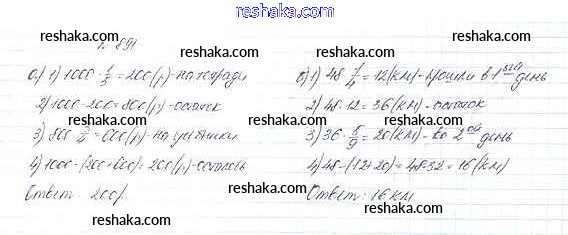 reshaka.ru
№ 891
а) 1) 1000 · 1/5 = 200 (р) - на тетради
2) 1000 - 200 = 800 (р) - остаток
3) 800 · 3/4 = 600 (р) - на учебники
4) 1000 - (200 + 600) = 200 (р) - осталось
Ответ: 200 р.
б) 1) 48 · 1/4 = 12 (км) - прошли в 1 ый день
2) 48 - 12 = 36 (км) - остаток
3) 36 · 5/9 = 20 (км) - во 2 ой день
4) 48 - (12 + 20) = 48 - 32 = 16 (км)
Ответ: 16 км
reshaka.ru
reshaka.ru
reshaka.ru
reshaka.ru
reshaka.ru
reshaka.ru
reshaka.ru
reshaka.ru
reshaka.ru
reshaka.ru